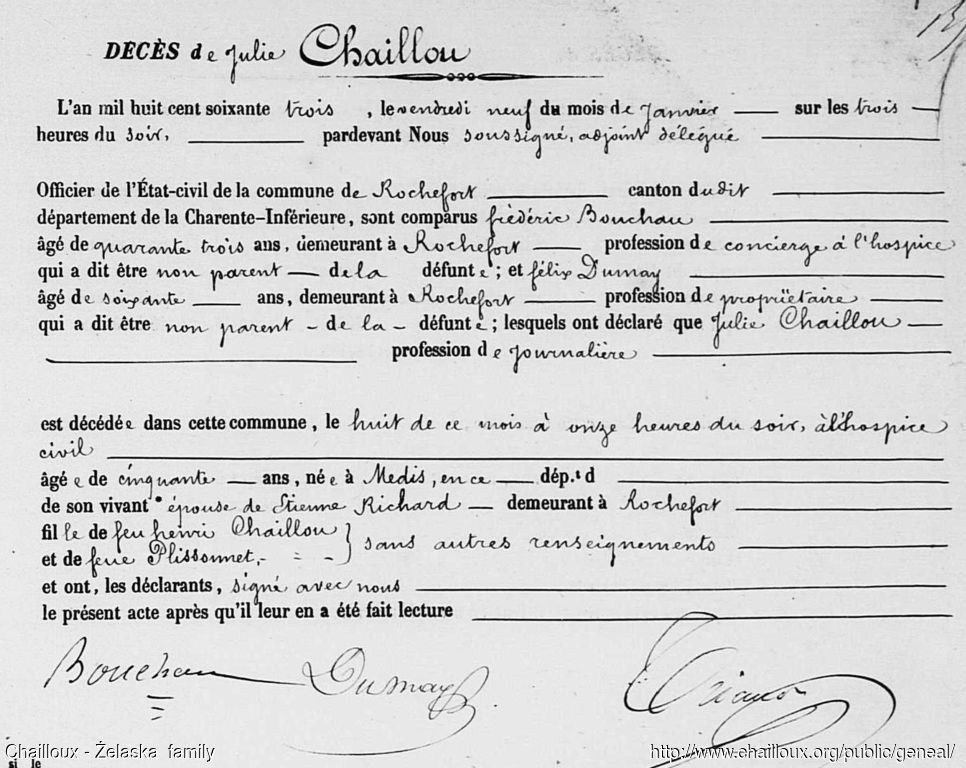 DECÈS de Julie Chaillou
L'an mil huit cent soixante trois, le vendredi neuf du mois de Janvier sur les trois
heures du soir, pardevant Nous soussigné, adjoint délégué
Officier de l'État-civil de la commune de Rochefort canton dudit
département de la Charente-Inférieure, sont comparus frédéric Bouchau
âgé de quarante trois ans, demeurant à Rochefort profession de concierge à l'hospice
qui a dit être non parent de la défunte; et félix Dumay
âgé de soixante ans, demeurant à Rochefort profession de propriétaire
qui a dit être non parent - de la - défunte; lesquels ont déclaré que Julie Chaillou
profession de journalière
est décédée dans cette commune, le huit de ce mois à onze heures du soir, à l'hospice
civil
âgée de cinquante ans, née à Medis, en ce dép.t d
de son vivant épouse de Etienne Richard demeurant à Rochefort
fille de feu henri Chaillou
et de feue Plissonnet, } sans autres renseignements
et ont, les déclarants, signé avec nous
le présent acte après qu'il leur en a été fait lecture
Bouchau Dumay
Chailloux - Želaska family http://www.chailloux.org/public/geneal/
si le